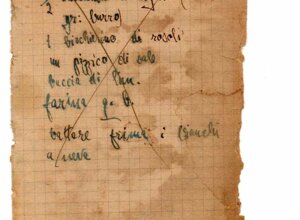 2
gr: burro)
1 bicchierino di rosoli
un pizzico di sale
buccia di lim.
farina q. b.
battere prima i bianchi
a neve